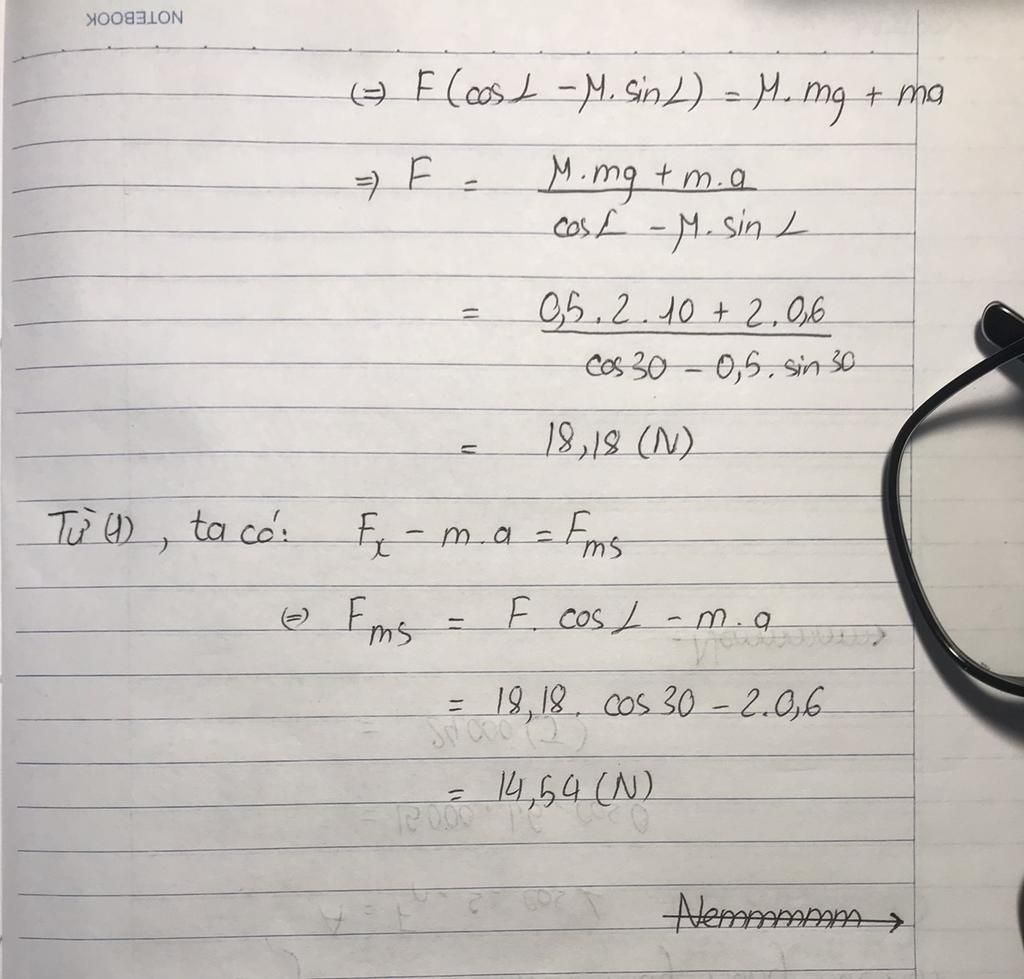 NOTEBOOK
(=) F(cosL - M. sinL) = M. mg + ma
=) F = M.mg + m.a
cosL - M. sin L
= 0,5 . 2 . 10 + 2. 0,6
cos 30 - 0,5. sin 30
= 18,18 (N)
Từ (1), ta có: Fx - m.a = Fms
(=) Fms = F. cosL - m.a
= 18,18. cos 30 - 2.0,6
= 14,54 (N)
Nemmmmm